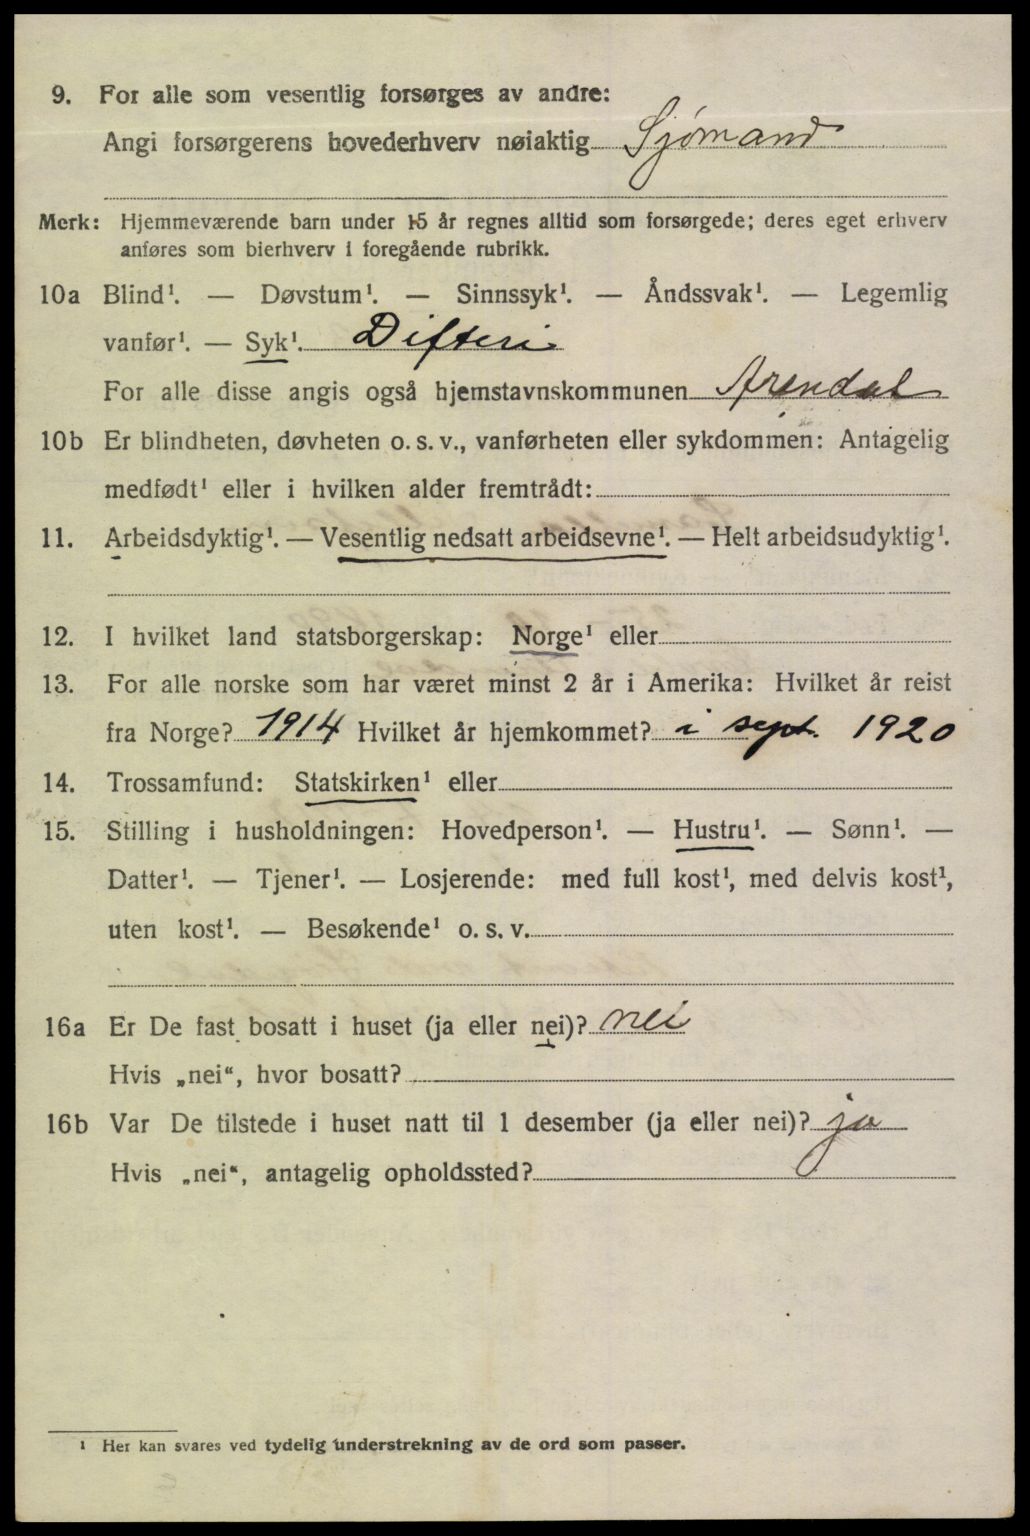 9. For alle som vesentlig forsørges av andre:
Angi forsørgerens hovederhverv nøiaktig Sjømand
Merk: Hjemmeværende barn under 15 år regnes alltid som forsørgede; deres eget erhverv
anføres som bierhverv i foregående rubrikk.
10a Blind¹. — Døvstum¹. — Sinnssyk¹. — Åndssvak¹. — Legemlig
vanfør¹. — Syk¹. Difteri
For alle disse angis også hjemstavnskommunen Arendal
10b Er blindheten, døvheten o. s. v., vanførheten eller sykdommen: Antagelig
medfødt¹ eller i hvilken alder fremtrådt:
11. Arbeidsdyktig¹. — Vesentlig nedsatt arbeidsevne¹. — Helt arbeidsudyktig¹.
12. I hvilket land statsborgerskap: Norge¹ eller
13. For alle norske som har været minst 2 år i Amerika: Hvilket år reist
fra Norge? 1914 Hvilket år hjemkommet? i sept. 1920
14. Trossamfund: Statskirken¹ eller
15. Stilling i husholdningen: Hovedperson¹. — Hustru¹. — Sønn¹. —
Datter¹. — Tjener¹. — Losjerende: med full kost¹, med delvis kost¹,
uten kost¹. — Besøkende¹ o. s. v.
16a Er De fast bosatt i huset (ja eller nei)? nei
Hvis „nei“, hvor bosatt?
16b Var De tilstede i huset natt til 1 desember (ja eller nei)? ja
Hvis „nei“, antagelig opholdssted?
¹ Her kan svares ved tydelig understrekning av de ord som passer.